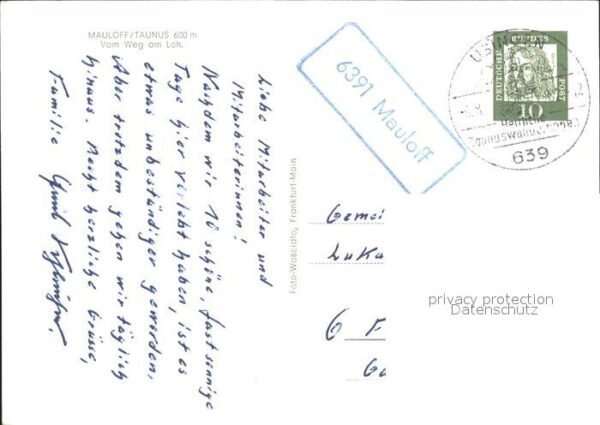 MAULOFF/TAUNUS 600 m
Vom Weg am Loh.
Liebe Mitarbeiter und
Mitarbeiterinnen!
Nachdem wir 10 schöne, fast sonnige
Tage hier verlebt haben, ist es
etwas unbeständiger geworden.
Aber trotzdem gehen wir täglich
hinaus. Recht herzliche Grüsse,
Familie
Foto-Wascidlo, Frankfurt-Main
6391 Mauloff
USINGEN
639
DEUTSCHE
BUNDES
POST
10
Gemei
Luka
6 F
privacy protection
Datenschutz